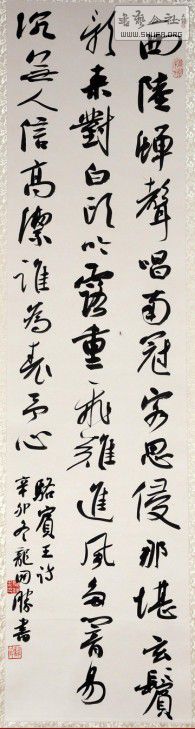 書藝公社
WWW.SHUFA.ORG
西陸蟬聲唱南冠客思侵那堪玄鬢
影來對白頭吟露重飛難進風多響易
沉無人信高潔誰為表予心
駱賓王詩
辛卯冬龍勝書